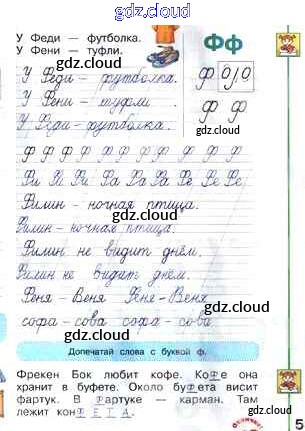 gdz.cloud
У Феди — футболка.
У Фени — туфли.
Фф
У Феди - футболка.
У Фени - туфли.
У Феди - футболка.
gdz.cloud
Ф
Ф Ф
gdz.cloud
Ф Ф Ф Ф Ф Ф Ф Ф Ф Ф
Фи Фи Фи Фа Фа Фа Фе Фе Фе
Филин - ночная птица.
gdz.cloud
Филин - ночная птица.
Филин не видит днём.
Филин не видит днём.
Феня - Веня Феня - Веня
gdz.cloud
софа - сова софа - сова
gdz.cloud
Допечатай слова с буквой ф.
Фрекен Бок любит кофе. Кофе она
хранит в буфете. Около буфета висит
фартук. В фартуке — карман. Там
лежит конФЕТА.
gdz.cloud
5